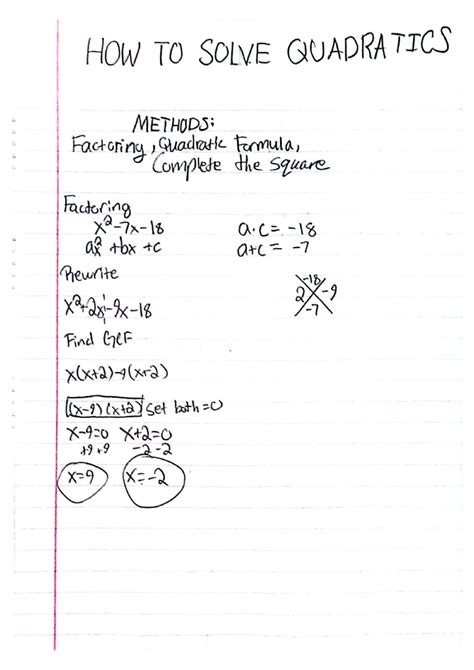 HOW TO SOLVE QUADRATICS
METHODS:
Factoring, Quadratic Formula,
Complete the square
Factoring
x²-7x-18
a·c = -18
ax² + bx + c
a+c = -7
Rewrite
-18
2 -9
-7
x²+2x-9x-18
Find GCF
x(x+2)-9(x+2)
(x-9)(x+2) set both=0
x-9=0 x+2=0
+9 +9 -2 -2
x=9 x=-2